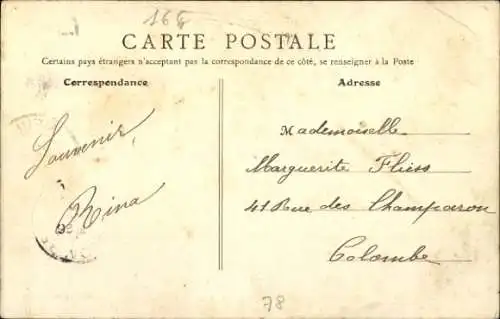 168
CARTE POSTALE
Certains pays étrangers n'acceptant pas la correspondance de ce côté, se renseigner à la Poste
Correspondance
Adresse
Souvenir
Rina
Mademoiselle
Marguerite Fliess
41 Rue des Champaron
Colombe
78